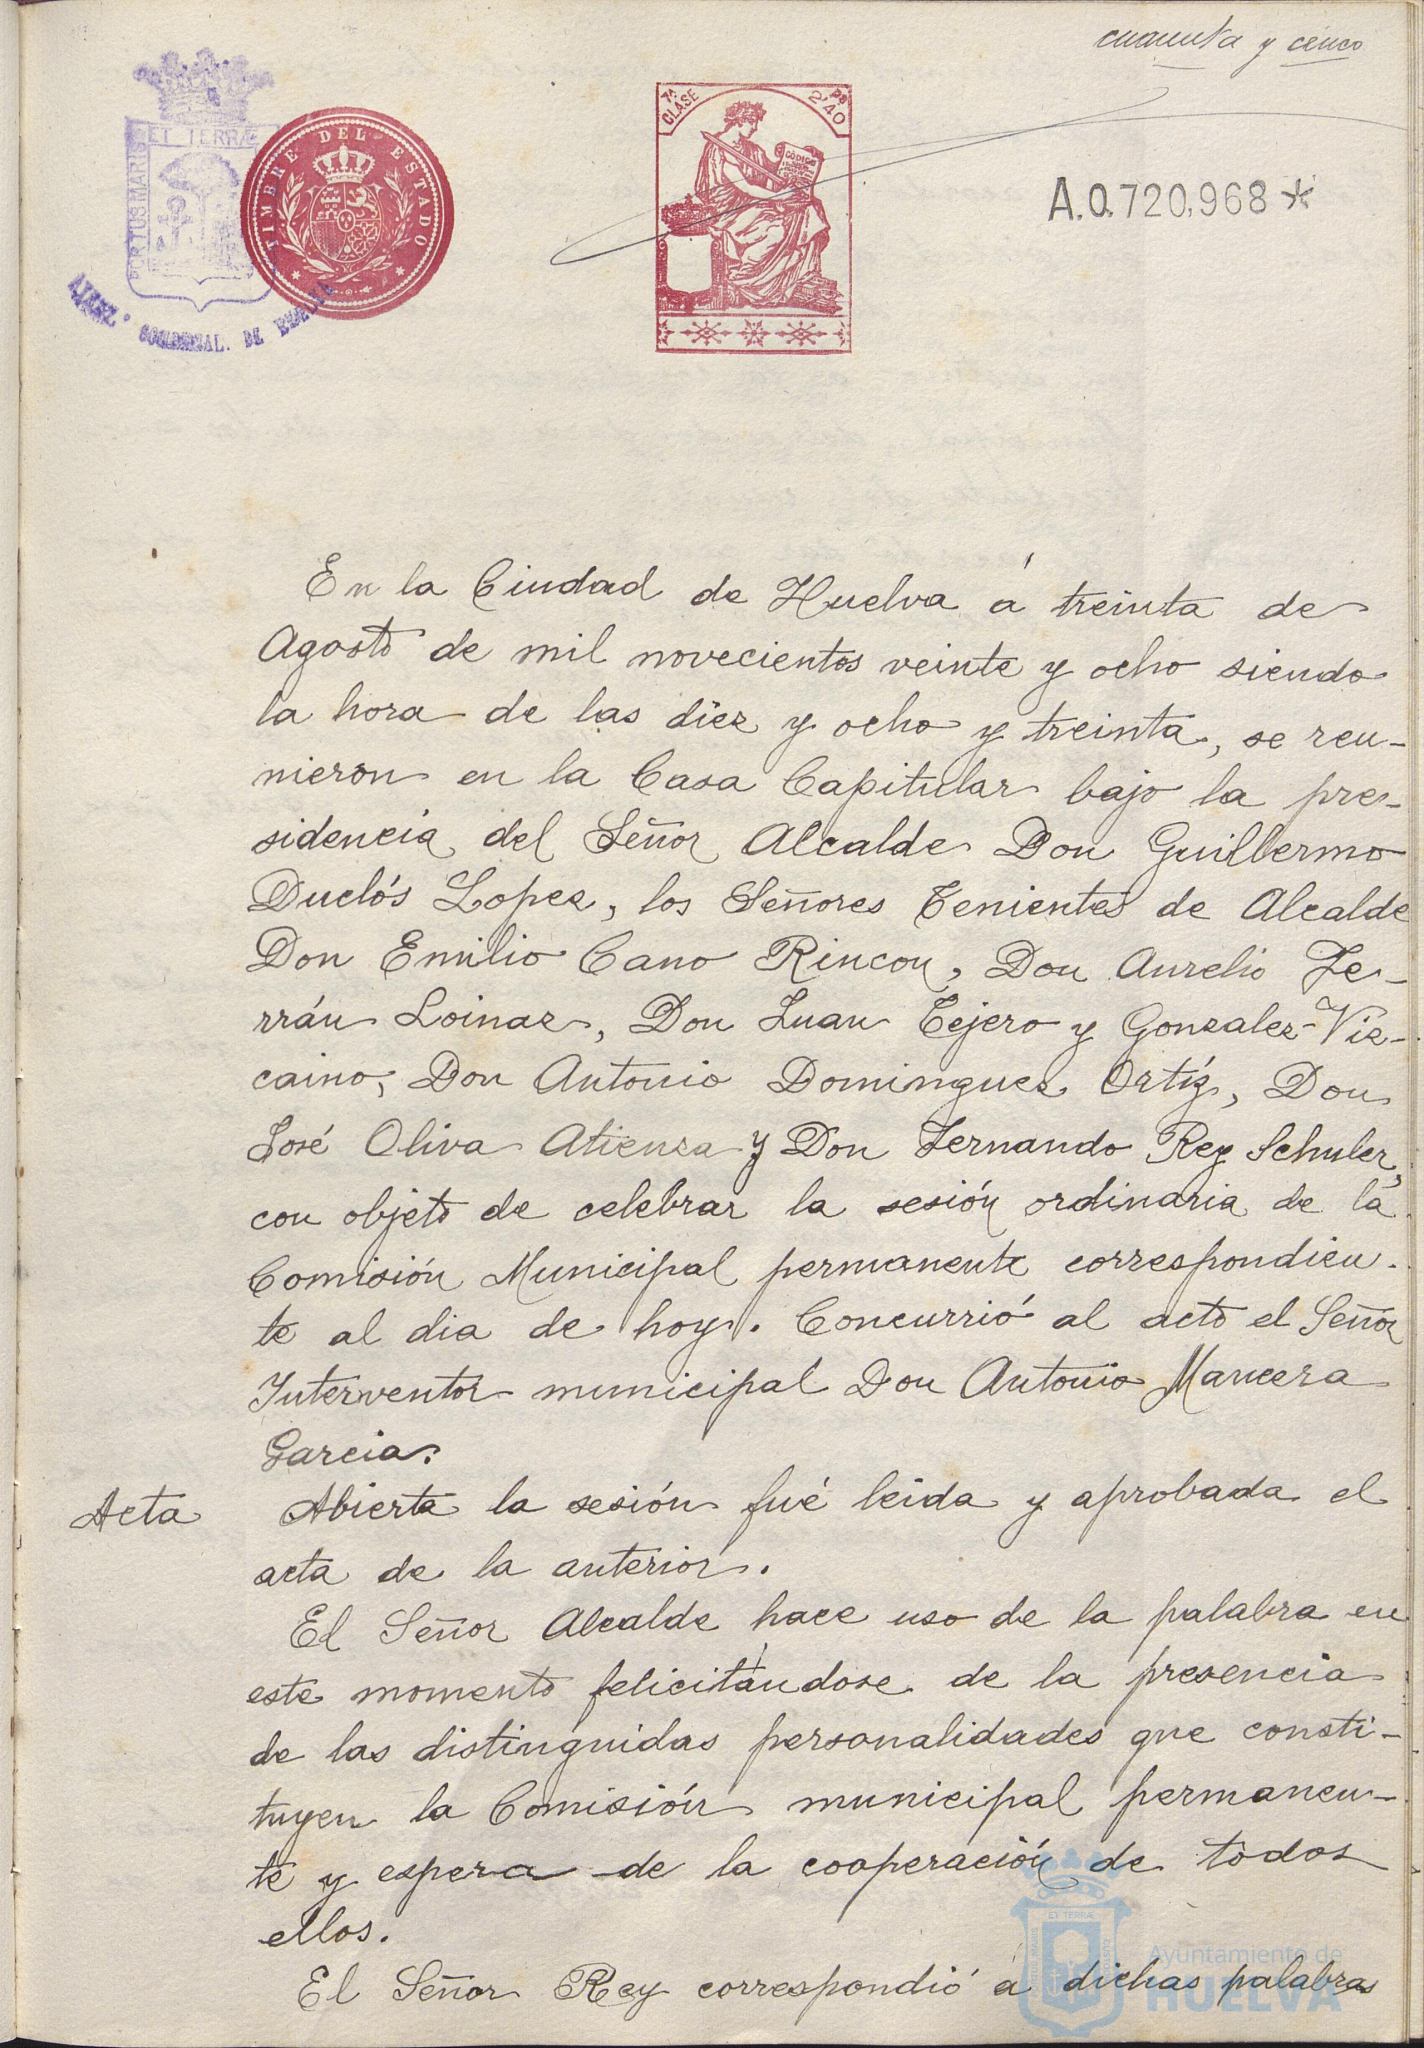 cuarenta y cinco
PORTUS MARIS ET TERRÆ
TIMBRE DEL ESTADO
7ª CLASE
2'40
CÓDIGO
A.0.720,968*
DE HUELVA
En la Ciudad de Huelva á treinta de
Agosto de mil novecientos veinte y ocho siendo
la hora de las diez y ocho y treinta, se reu-
nieron en la Casa Capitular bajo la pre-
sidencia del Señor Alcalde Don Guillermo
Duclós Lopez, los Señores Tenientes de Alcalde
Don Emilio Cano Rincon, Don Aurelio Fe-
rrán Loinaz, Don Juan Tejero y Gonzalez-Viz-
caino, Don Antonio Dominguez Ortíz, Don
José Oliva Atienza y Don Fernando Rey Schuler,
con objeto de celebrar la sesión ordinaria de la
Comisión Municipal permanente correspondien-
te al dia de hoy. Concurrió al acto el Señor
Interventor municipal Don Antonio Mancera
Garcia.
Acta Abierta la sesión fué leida y aprobada el
acta de la anterior.
El Señor Alcalde hace uso de la palabra en
este momento felicitándose de la presencia
de las distinguidas personalidades que consti-
tuyen la Comisión municipal permanen-
te y espera de la cooperación de todos
ellos.
El Señor Rey correspondió á dichas palabras
Ayuntamiento de
HUELVA